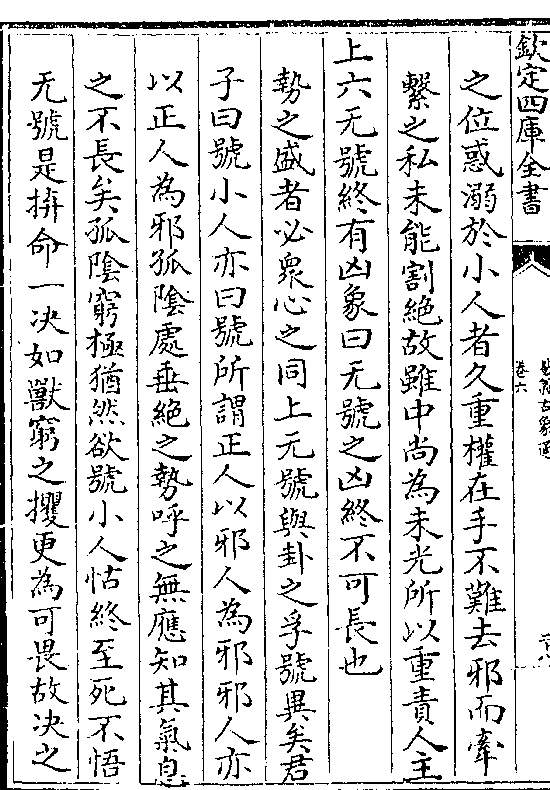 欽定四庫全書
卷六
之位惑溺於小人者久重權在手不難去邪而牽
繫之私未能割絶故雖中尚為未光所以重責人主
上六无號終有凶象曰无號之凶終不可長也
勢之盛者必衆心之同上无號與卦之孚號異矣君
子曰號小人亦曰號所謂正人以邪人為邪邪人亦
以正人為邪孤陰處垂絶之勢呼之無應知其氣息
之不長矣孤陰窮極猶然欲號小人怙終至死不悟
无號是拚命一決如獸窮之攫更為可畏故決之